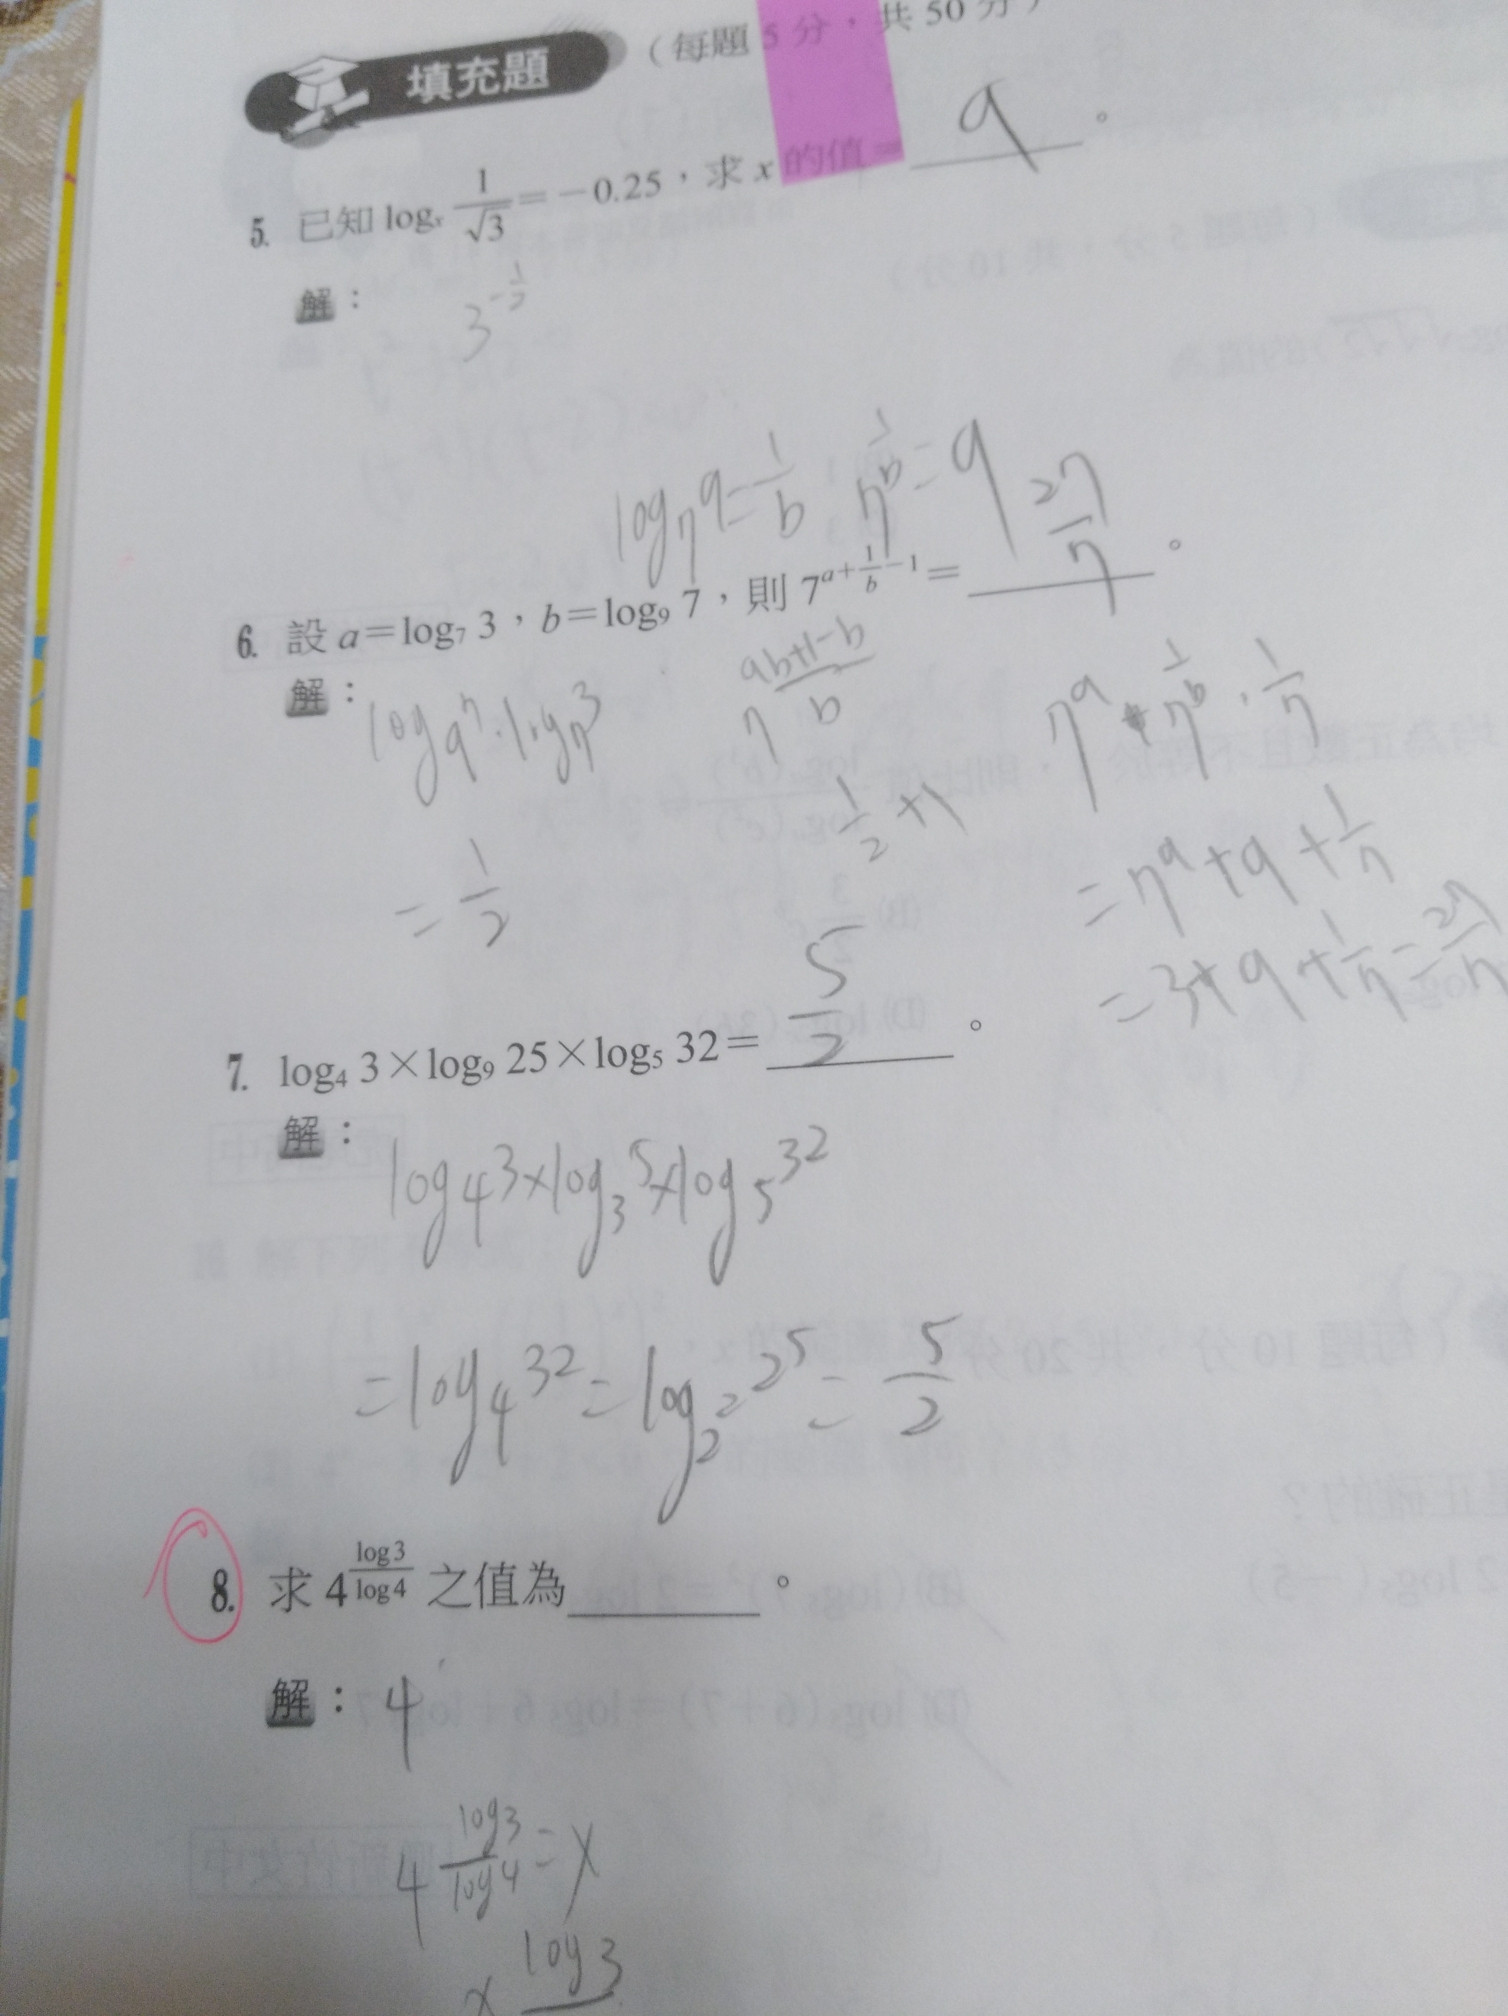 填充題 (每題 5 分,共 50 分)
5. 已知 logₓ 1/√3 = -0.25,求 x 的值= 9 。
解:
3^(-1/2)
log₇ 9 = 1/b 7^(1/b) = 9
6. 設 a=log₇ 3,b=log₉ 7,則 7^(a+1/b-1) = 27/7 。
解:
log₉ 7 · log₇ 3 7^((ab+1-b)/b) 7^a · 7^(1/b) · 1/7
= 1/2 1/2 + 1 = 7^a + 9 + 1/7
= 3 + 9 + 1/7 = 27/7
7. log₄ 3×log₉ 25×log₅ 32= 5/2 。
解:
log₄ 3 × log₃ 5 × log₅ 32
= log₄ 32 = log_(2²) 2⁵ = 5/2
8. 求 4^(log3/log4) 之值為 。
解: 4
4^(log3/log4) = x
x log 3